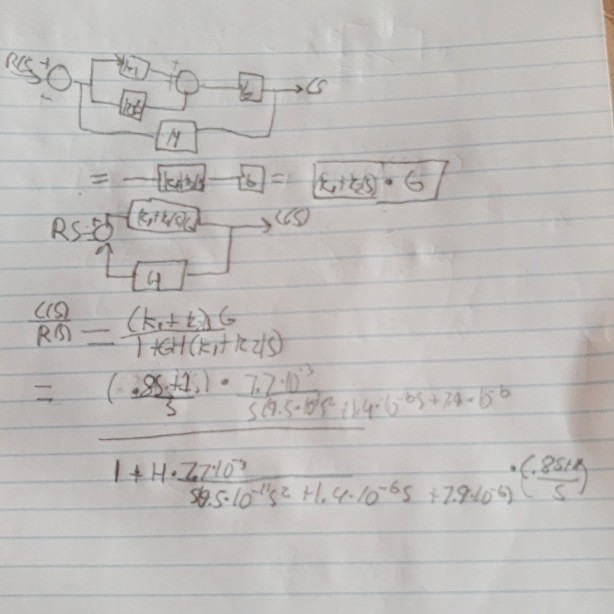 R(S) + k1 + G → CS
-
H
= k1+k2/s G = k1+k2/s · G
RS + (k1+k2/s)G → C(S)
H
C(S)/R(S) = (k1+k2)G / 1+GH(k1+k2/S)
= (.8S+1.)/S · 7.7·10^-3 / S(9.5·10 S^2+1.4·10^-6S+7.9·10^-6
1 + H · 7.7·10^-3 / S9.5·10^-11S^2 +1.4·10^-6S +7.9·10^-6) · (.8S+1/S)